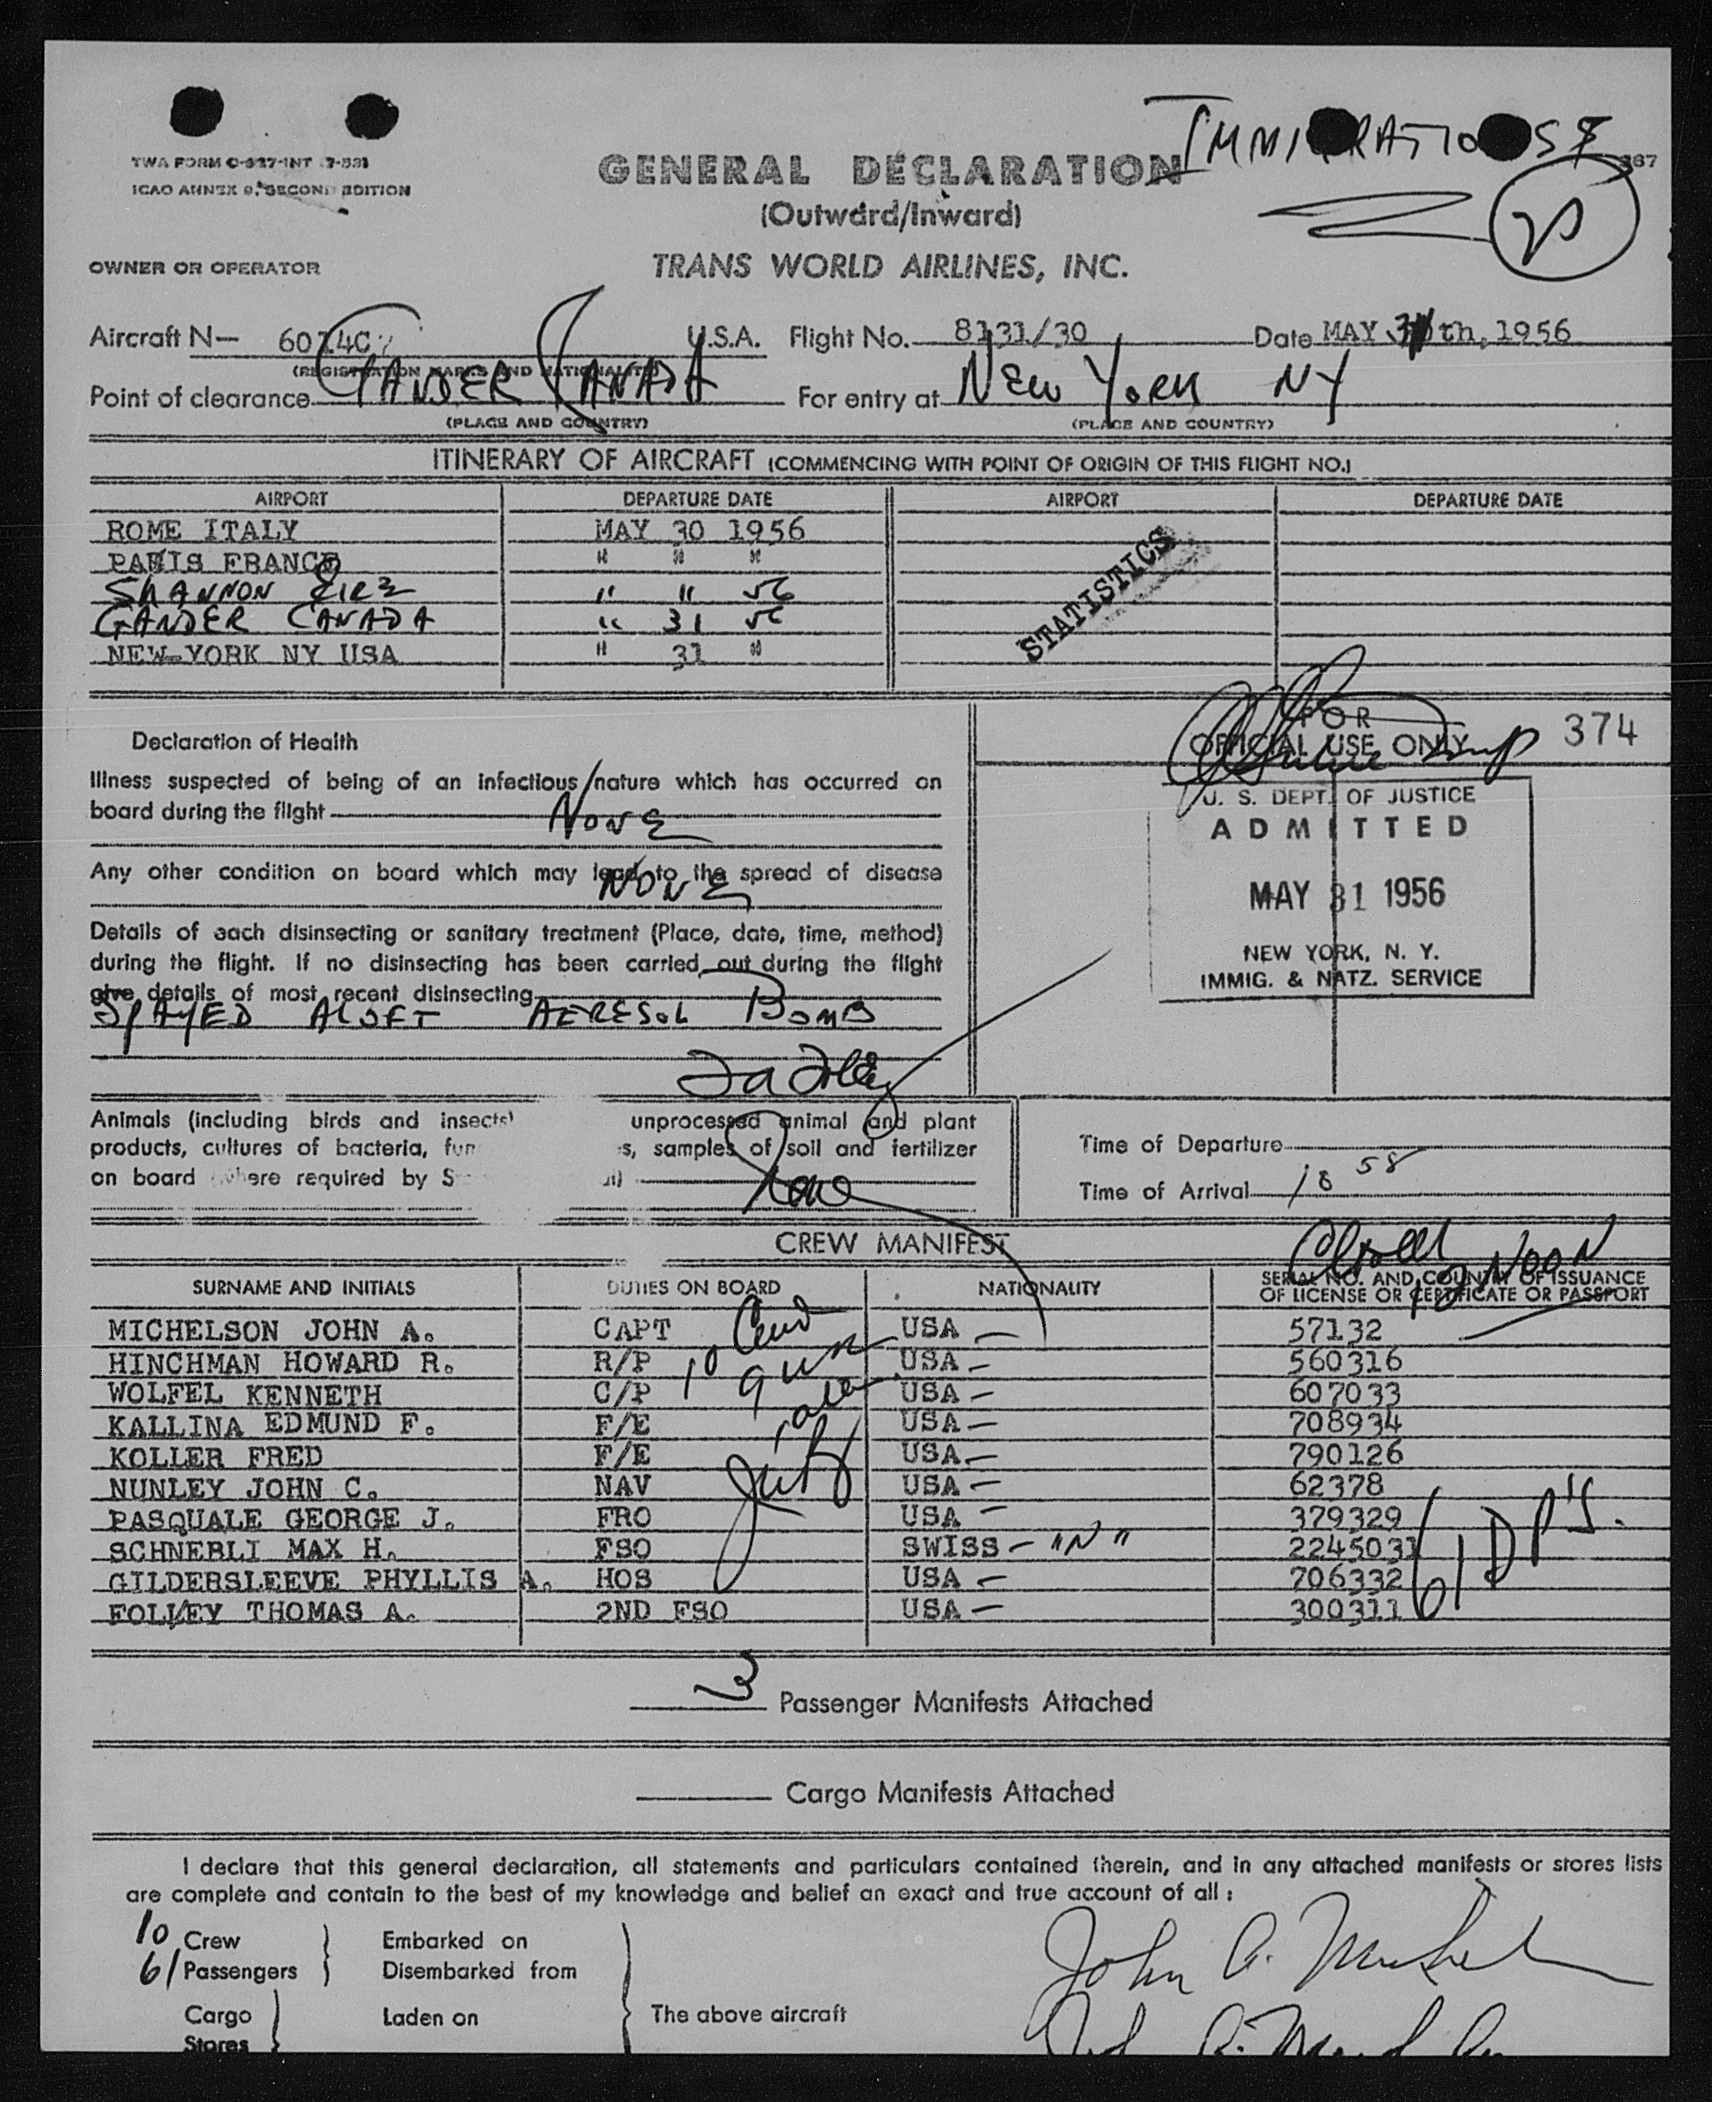 TWA FORM C-
ICAO ANNEX 9, SECOND EDITION
GENERAL DECLARATION
(Outward/Inward)
TRANS WORLD AIRLINES, INC.
OWNER OR OPERATOR
Aircraft N— 6014C U.S.A. Flight No. 8131/30 Date MAY 31th, 1956
(REGISTRATION MARKS AND NATIONALITY)
Point of clearance GANDER CANADA For entry at NEW YORK NY
(PLACE AND COUNTRY) (PLACE AND COUNTRY)
ITINERARY OF AIRCRAFT (COMMENCING WITH POINT OF ORIGIN OF THIS FLIGHT NO.)
AIRPORT DEPARTURE DATE AIRPORT DEPARTURE DATE
ROME ITALY MAY 30 1956
PARIS FRANCE " " "
SHANNON EIRE " " 56
GANDER CANADA " 31 56
NEW YORK NY USA " 31 "
STATISTICS
FOR
OFFICIAL USE ONLY 374
Declaration of Health
Illness suspected of being of an infectious nature which has occurred on
board during the flight NONE
Any other condition on board which may lead to the spread of disease
NONE
Details of each disinsecting or sanitary treatment (Place, date, time, method)
during the flight. If no disinsecting has been carried out during the flight
give details of most recent disinsecting
SPAYED ALOFT AERESOL BOMB
U. S. DEPT. OF JUSTICE
ADMITTED
MAY 31 1956
NEW YORK, N. Y.
IMMIG. & NATZ. SERVICE
Animals (including birds and insects) unprocessed animal and plant
products, cultures of bacteria, samples of soil and fertilizer
on board (where required by
Time of Departure
Time of Arrival 18 58
CREW MANIFEST
12 NOON
SURNAME AND INITIALS DUTIES ON BOARD NATIONALITY SERIAL NO. AND COUNTRY OF ISSUANCE
OF LICENSE OR CERTIFICATE OR PASSPORT
MICHELSON JOHN A. CAPT USA — 57132
HINCHMAN HOWARD R. R/P USA — 560316
WOLFEL KENNETH C/P USA — 607033
KALLINA EDMUND F. F/E USA — 708934
KOLLER FRED F/E USA — 790126
NUNLEY JOHN C. NAV USA — 62378
PASQUALE GEORGE J. FRO USA — 379329
SCHNEBLI MAX H. FSO SWISS — "N" 2245031
GILDERSLEEVE PHYLLIS A. HOS USA — 706332
FOLLEY THOMAS A. 2ND FSO USA — 300311
61 DP'S.
3 Passenger Manifests Attached
Cargo Manifests Attached
I declare that this general declaration, all statements and particulars contained therein, and in any attached manifests or stores lists
are complete and contain to the best of my knowledge and belief an exact and true account of all:
10 Crew Embarked on
61 Passengers Disembarked from
Cargo Laden on The above aircraft
Stores
John A. Michelson